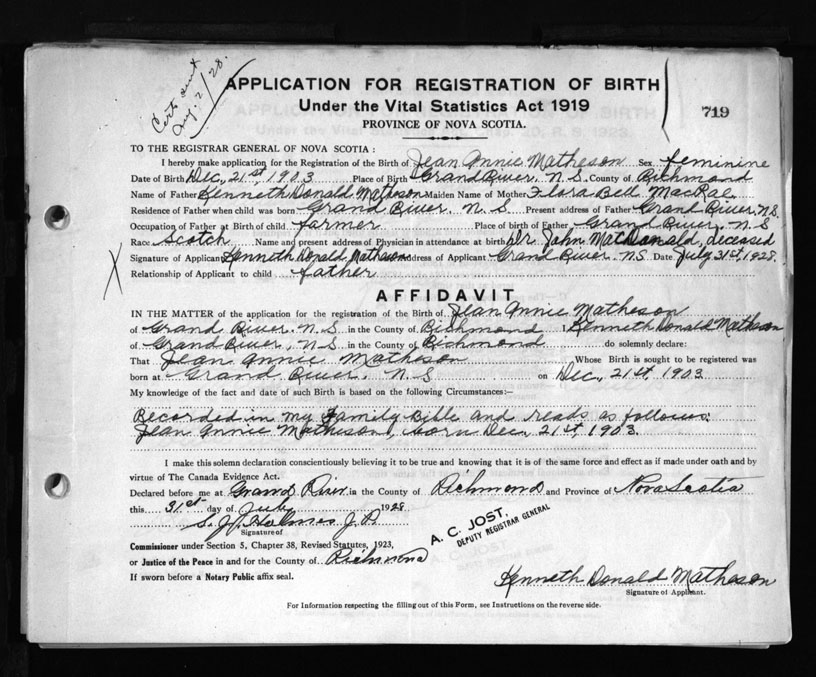 Cert. sent
Aug. 2/28.
APPLICATION FOR REGISTRATION OF BIRTH
Under the Vital Statistics Act 1919
PROVINCE OF NOVA SCOTIA
719
TO THE REGISTRAR GENERAL OF NOVA SCOTIA:
I hereby make application for the Registration of the Birth of Jean Annie Matheson Sex feminine
Date of Birth Dec, 21st, 1903 Place of Birth Grand River, N.S. County of Richmond
Name of Father Kenneth Donald Matheson Maiden Name of Mother Flora Bell MacRae
Residence of Father when child was born Grand River N.S Present address of Father Grand River N.S.
Occupation of Father at Birth of child farmer Place of birth of Father, Grand River, N.S
Race Scotch Name and present address of Physician in attendance at birth Dr. John MacDonald, deceased
Signature of Applicant Kenneth Donald Matheson Address of Applicant Grand River N.S. Date July 31st, 1928.
X
Relationship of Applicant to child father
AFFIDAVIT
IN THE MATTER of the application for the registration of the Birth of Jean Annie Matheson
of Grand River N.S in the County of Richmond I Kenneth Donald Matheson
of Grand River, N.S in the County of Richmond do solemnly declare:
That Jean Annie Matheson Whose Birth is sought to be registered was
born at Grand River, N.S on Dec, 21st, 1903
My knowledge of the fact and date of such Birth is based on the following Circumstances:—
Recorded in my Family Bible and reads as follows:
Jean Annie Matheson, born Dec, 21st, 1903.
I make this solemn declaration conscientiously believing it to be true and knowing that it is of the same force and effect as if made under oath and by
virtue of The Canada Evidence Act.
Declared before me at Grand River in the County of Richmond and Province of Nova Scotia
this 31st day of July 1928
S. J. Holmes J.P.
Signature of
A. C. JOST,
DEPUTY REGISTRAR GENERAL
Commissioner under Section 5, Chapter 38, Revised Statutes, 1923,
or Justice of the Peace in and for the County of Richmond
If sworn before a Notary Public affix seal.
Kenneth Donald Matheson
Signature of Applicant.
For Information respecting the filling out of this Form, see Instructions on the reverse side.